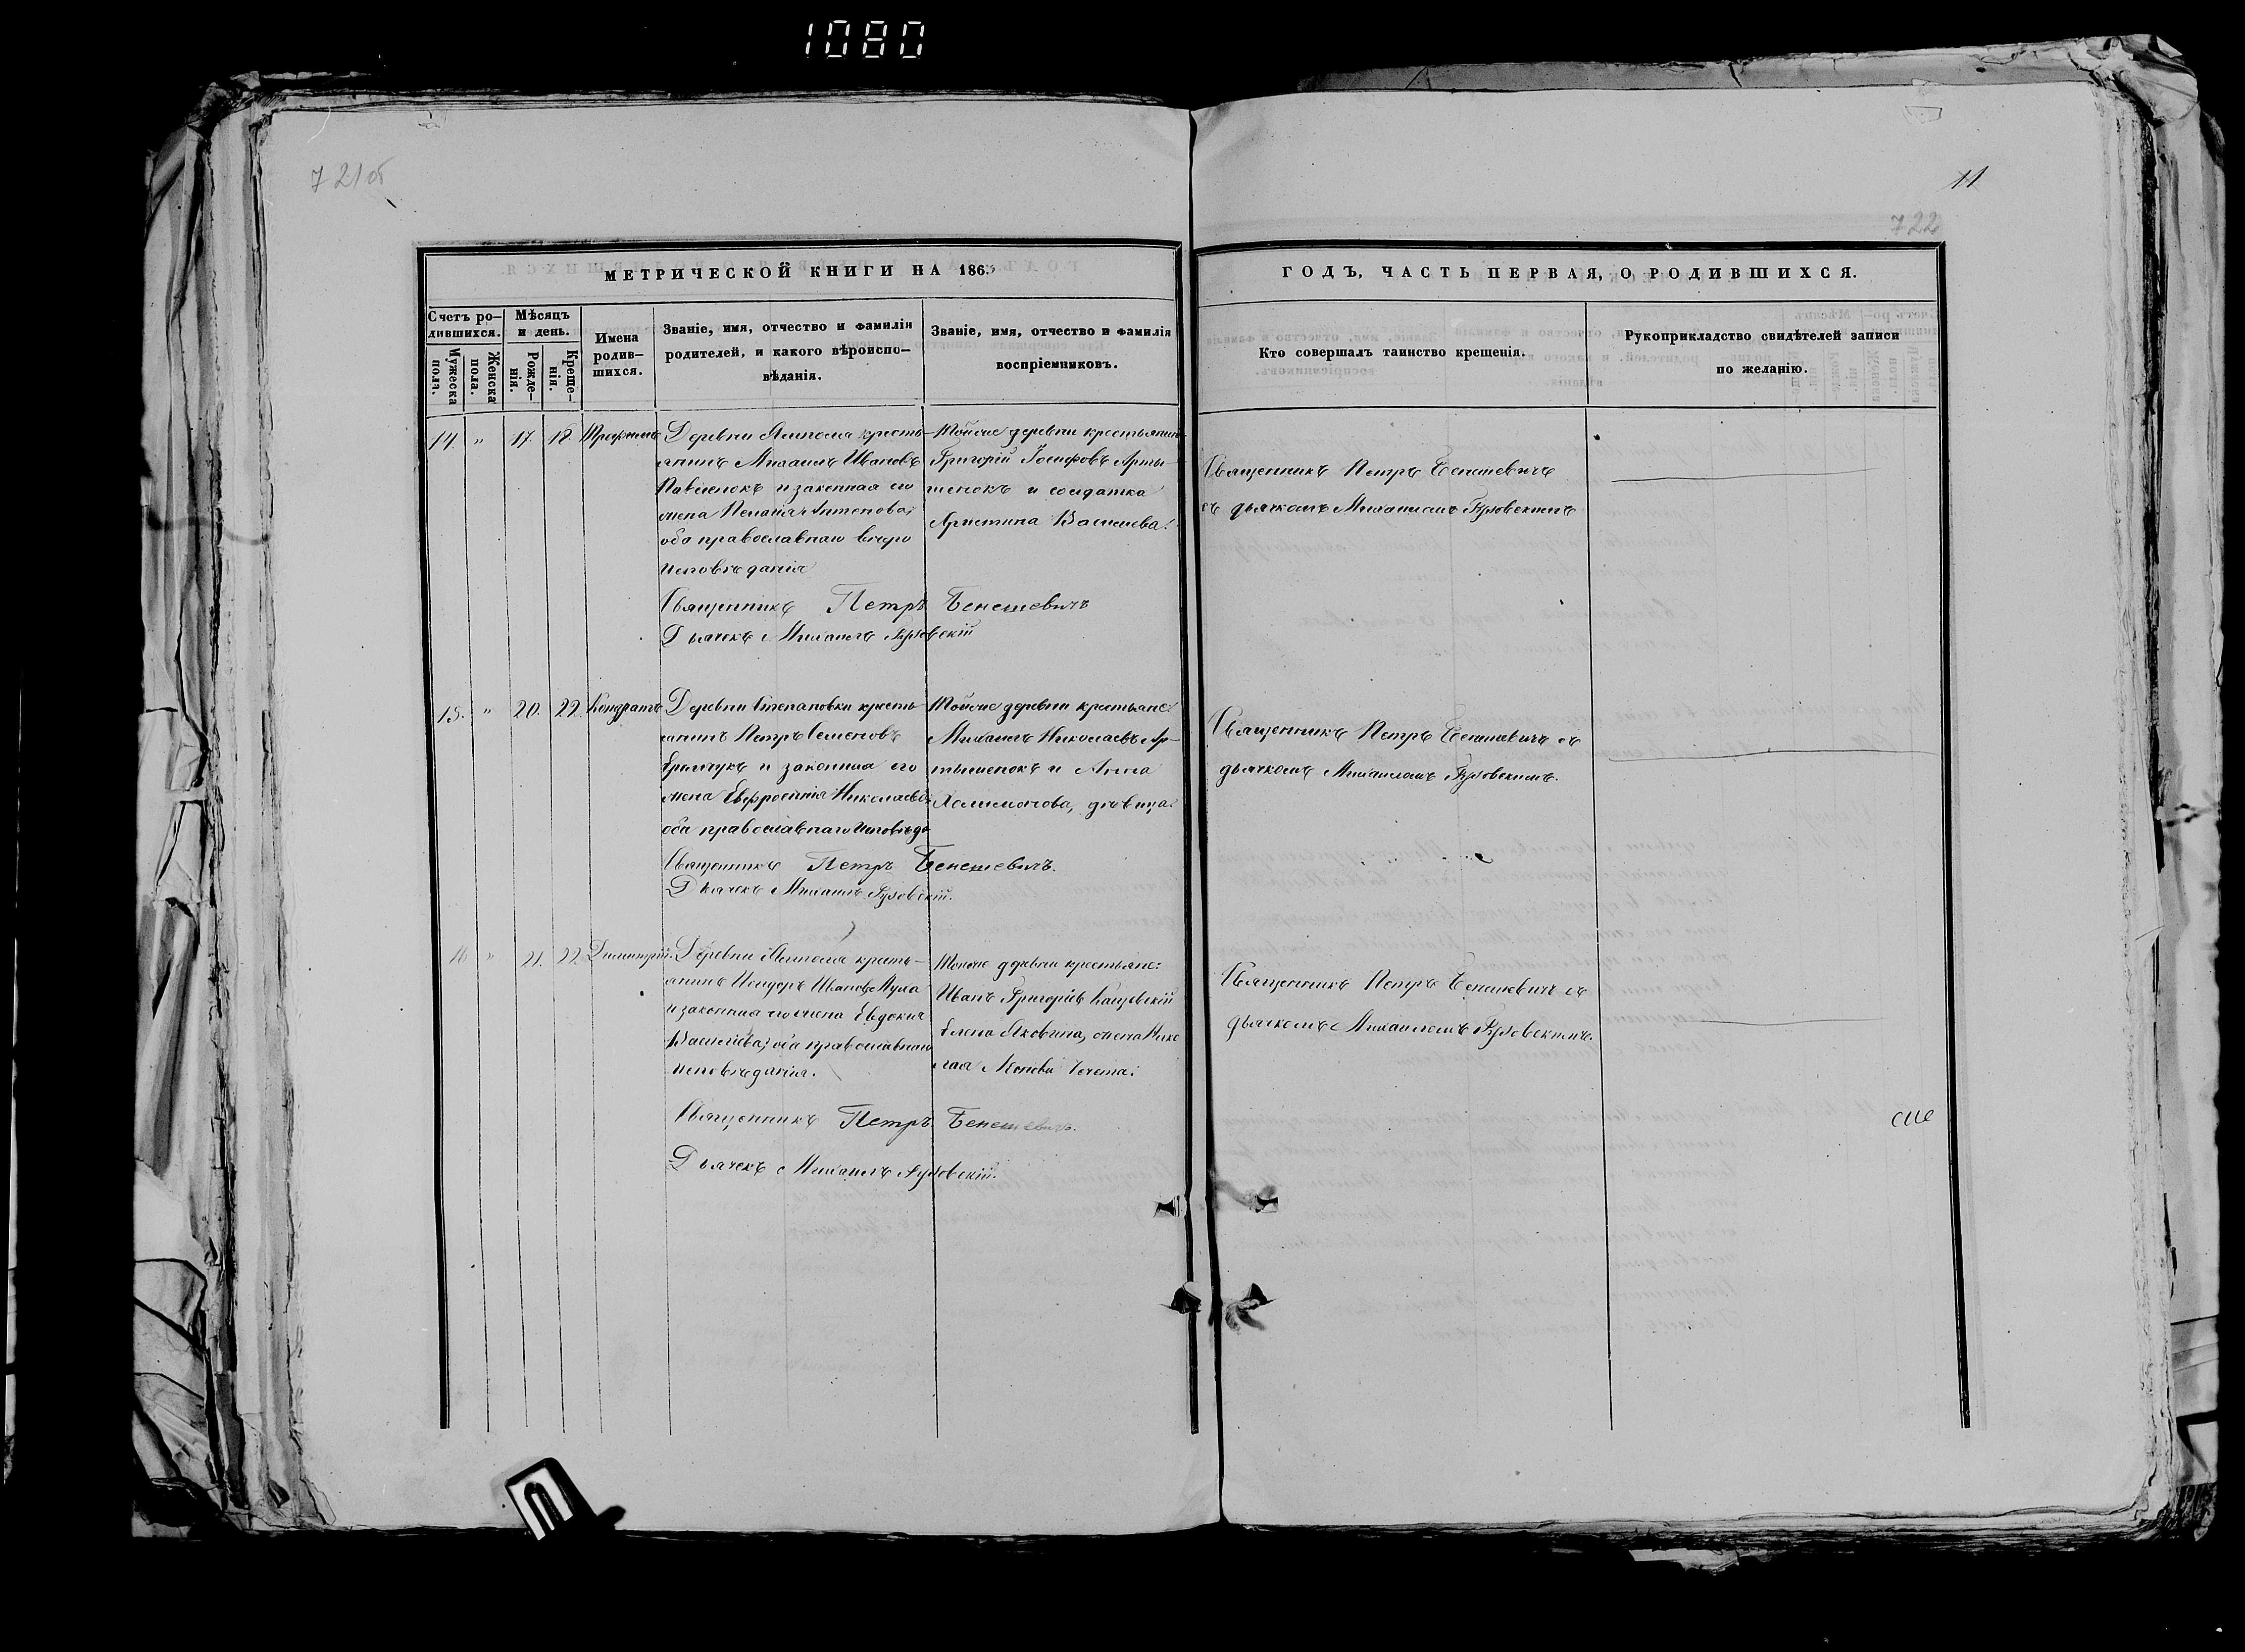 1080
721об
11
722
МЕТРИЧЕСКОЙ КНИГИ НА 1863
ГОДЪ, ЧАСТЬ ПЕРВАЯ, О РОДИВШИХСЯ.
Счетъ ро–
дившихся.
Мужеска
пола.
Женска
пола.
Мѣсяцъ
и день.
Рожде–
нія.
Креще–
нія.
Имена
родив–
шихся.
Званіе, имя, отчество и фамилія
родителей, и какого вѣроиспо–
вѣданія.
Званіе, имя, отчество и фамилія
воспріемниковъ.
Кто совершалъ таинство крещенія.
Рукоприкладство свидѣтелей записи
по желанію.
14. " 17. 18. Трофимъ
Деревни кресть–
янинъ Михаилъ Ивановъ
Павленокъ и законная его
жена Пелагія Антонова,
оба православнаго вѣро
исповѣданія
Тойже деревни крестьянинъ
Григорій Іосифовъ Арты–
шенокъ и солдатка
Христина Васильева.
Священникъ Петръ Бенешевичъ
съ дьячкомъ Михаиломъ
Священникъ Петръ Бенешевичъ
Дьячекъ Михаилъ
15. " 20. 22. Кондратъ
Деревни Степановки кресть–
янинъ Петръ Семеновъ
и законная его
жена Евфросинія Николаева
оба православнаго исповѣда
Тойже деревни крестьяне:
Михаилъ Николаевъ Ар–
тышенокъ и Анна
дѣвица.
Священникъ Петръ Бенешевичъ съ
дьячкомъ Михаиломъ
Священникъ Петръ Бенешевичъ.
Дьячекъ Михаилъ
16 " 21. 22. Димитрій.
Деревни кресть–
янинъ Исидоръ Ивановъ Муха
и законная его жена Евдокія
Васильева, оба православнаго
исповѣданія.
Тойже деревни крестьяне:
Иванъ Григорьевъ
Елена Яковлева, жена Нико
лая
Священникъ Петръ Бенешевичъ съ
дьячкомъ Михаиломъ
Священникъ Петръ Бенешевичъ.
Дьячекъ Михаилъ